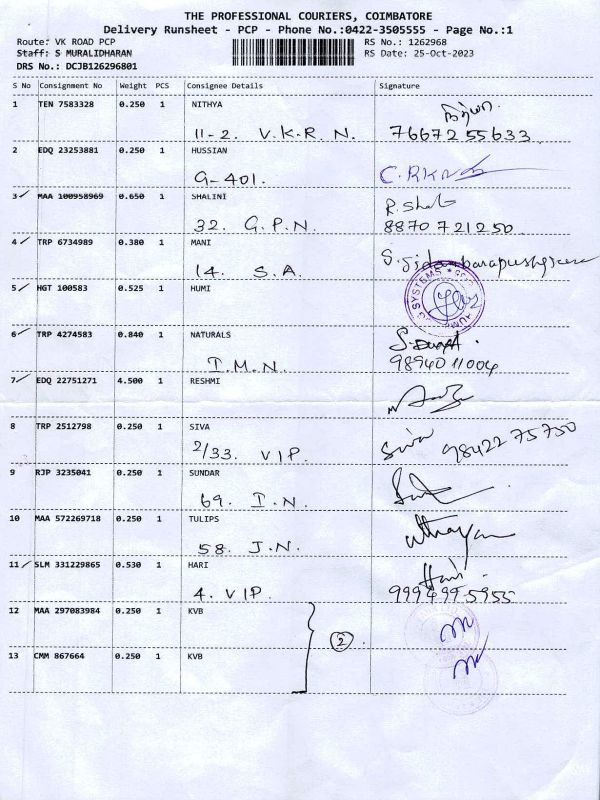 THE PROFESSIONAL COURIERS, COIMBATORE
Delivery Runsheet - PCP - Phone No.:0422-3505555 - Page No.:1
Route: VK ROAD PCP RS No.: 1262968
Staff: S MURALIDHARAN RS Date: 25-Oct-2023
DRS No.: DCJB126296801
S No Consignment No Weight PCS Consignee Details Signature
1 TEN 7583328 0.250 1 NITHYA
11-2. V.K.R.N. 76672 55633
2 EDQ 23253881 0.250 1 HUSSIAN
G-401.
3 MAA 100958969 0.650 1 SHALINI
32. G.P.N. 8870 721250
4 TRP 6734989 0.380 1 MANI
14. S.A.
5 HGT 100583 0.525 1 HUMI
SYSTEMS
6 TRP 4274583 0.840 1 NATURALS
I.M.N. 98940 11004
7 EDQ 22751271 4.500 1 RESHMI
8 TRP 2512798 0.250 1 SIVA
2/33. VIP. Siva 98422 75750
9 RJP 3235041 0.250 1 SUNDAR
69. I.N.
10 MAA 572269718 0.250 1 TULIPS
58. J.N.
11 SLM 331229865 0.530 1 HARI Hari
4. VIP. 999499 5955
12 MAA 297083984 0.250 1 KVB
2
13 CMM 867664 0.250 1 KVB